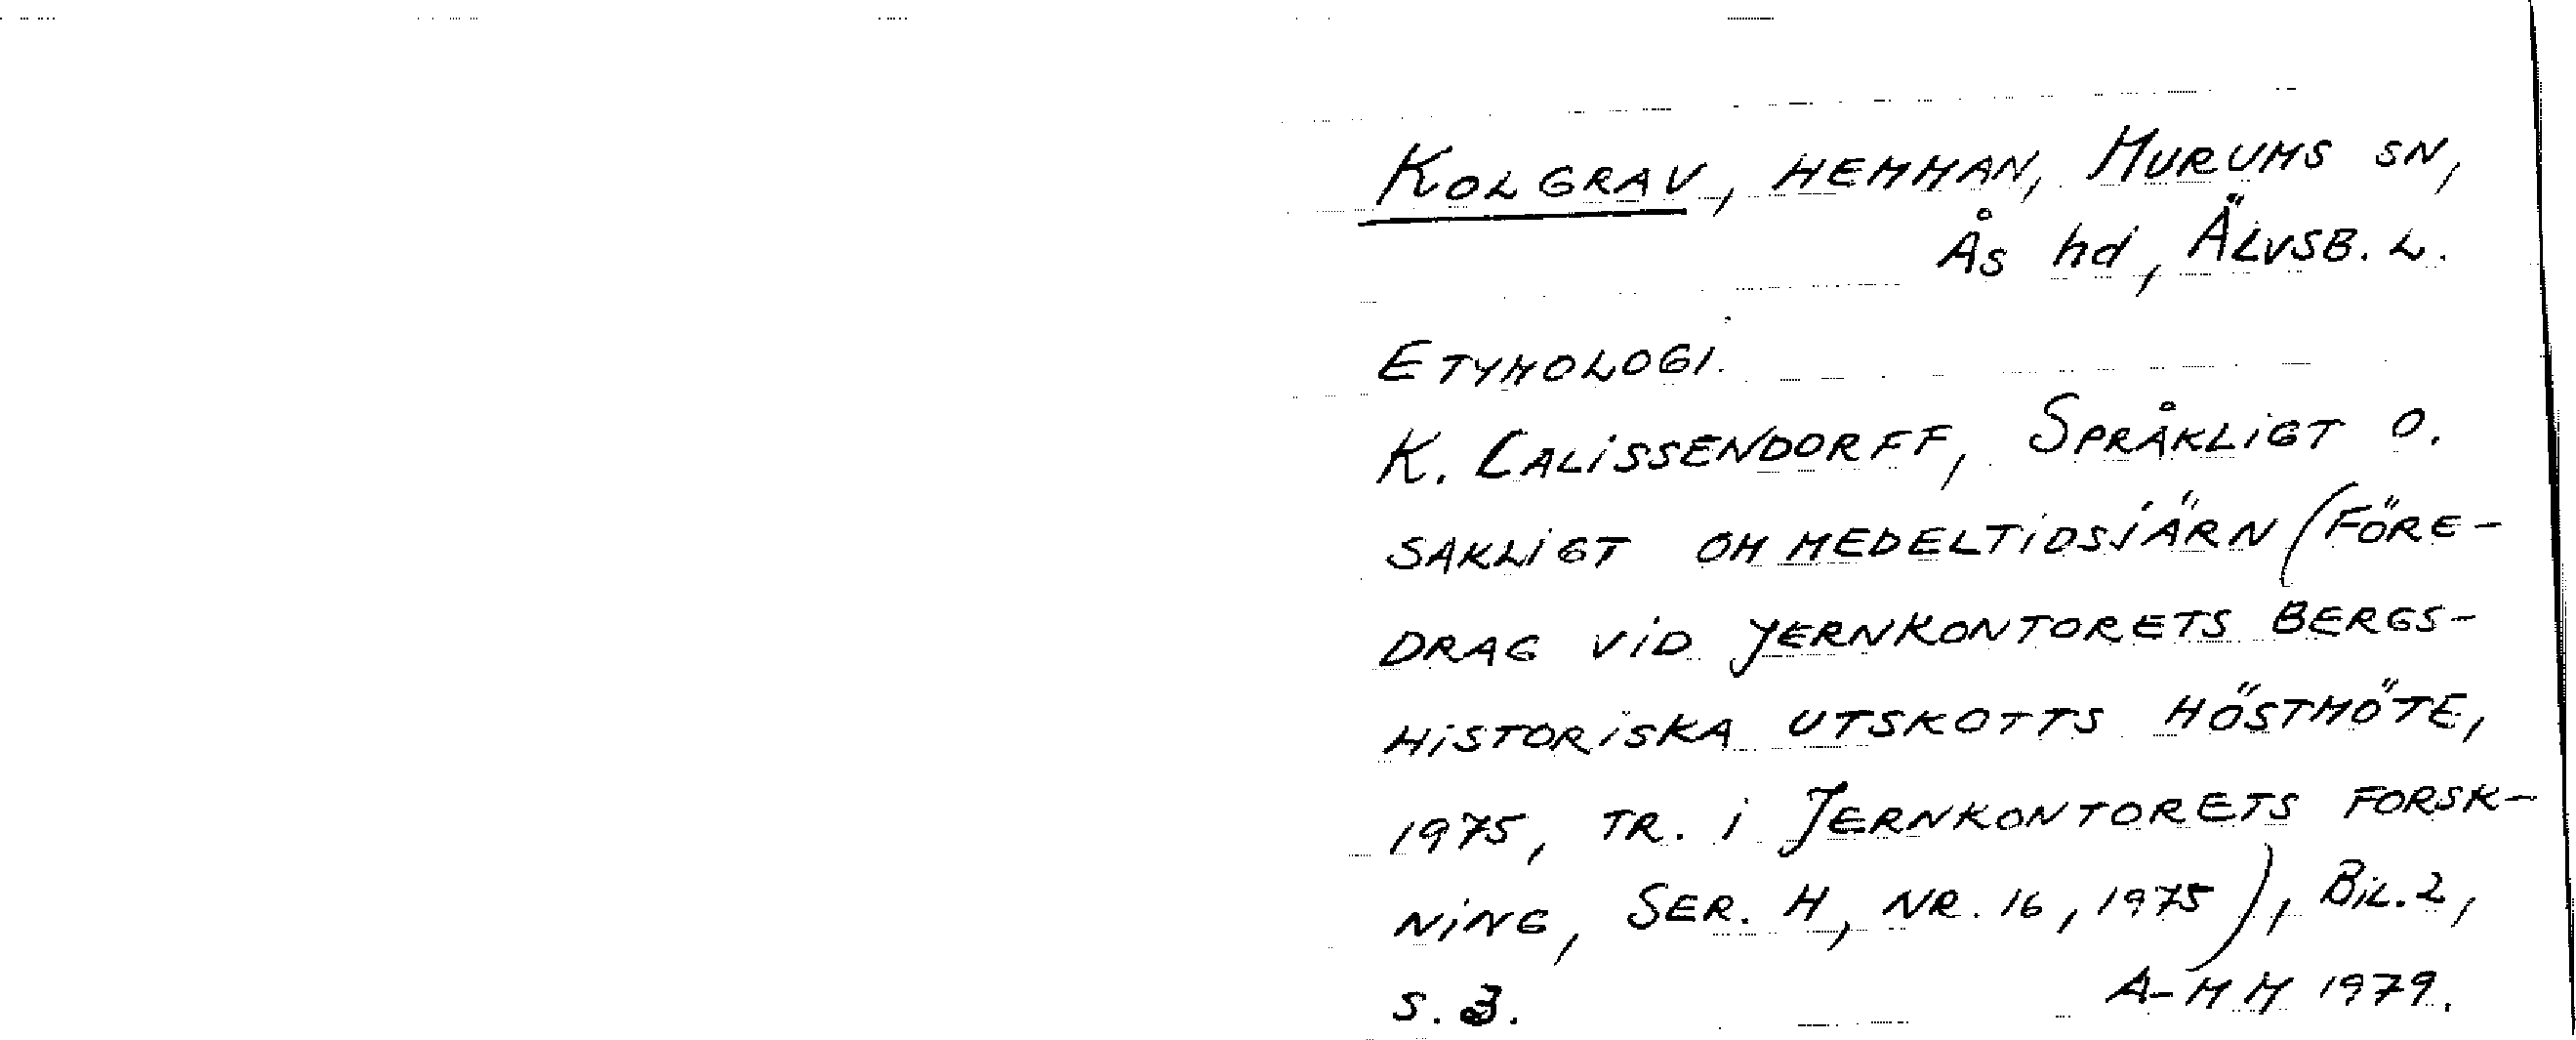 KOLGRAV, HEMMAN, MURUMS SN,
ÅS hd, ÄLVSB. L.
ETYMOLOGI.
K. CALISSENDORFF, SPRÅKLIGT O.
SAKLIGT OM MEDELTIDSJÄRN (FÖRE-
DRAG VID JERNKONTORETS BERGS-
HISTORISKA UTSKOTTS HÖSTMÖTE,
1975, TR. I JERNKONTORETS FORSK-
NING, SER. H, NR. 16, 1975), BIL. 2,
S. 3.
A-MM 1979.